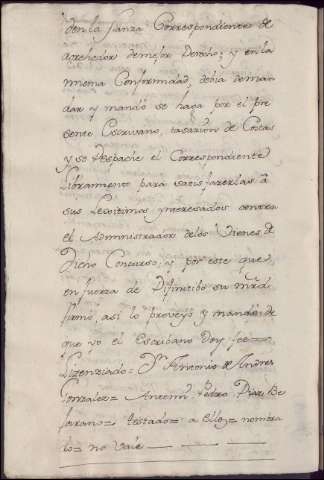 den la fianza Correspondiente de
acrehedor de mejor Derecho; y en la
misma Conformidad, devia de man
dar y mandó se haga por el pre
sente Escrivano, tasazion de Costas
y se despache el Correspondiente
Libramiento para satisfazerlas á
sus Lexitimos ynteresados contra
el Administrador de los Vienes de
Dicho Concurso, y por este que
en fuerza de Difinitibo su mrd
firmó, asi lo proveyó y mandó de
que yo el Escribano Doy fee=
Lizenziado Dn Antonio de Andres
Gonzalez= Antemi: Pedro Diaz Be
jarano= testado= a ello= nombra
lo= no vale